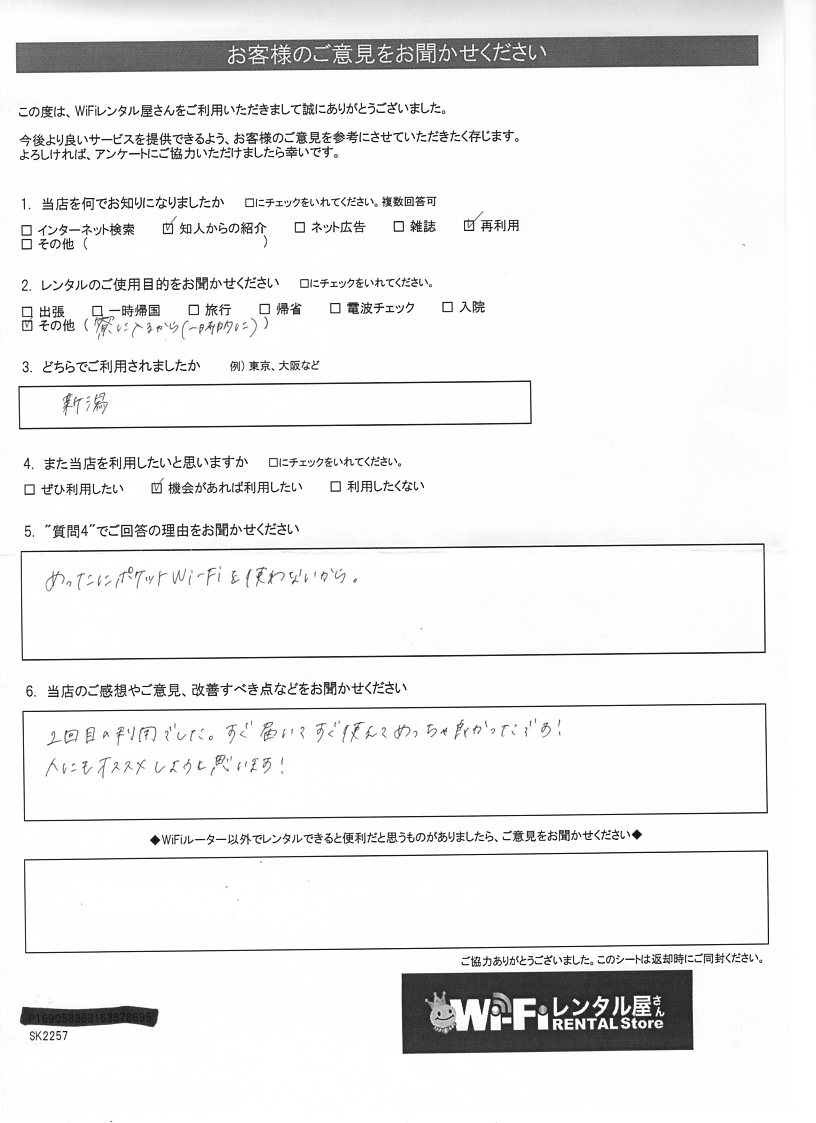 お客様のご意見をお聞かせください
この度は、WiFiレンタル屋さんをご利用いただきまして誠にありがとうございました。
今後より良いサービスを提供できるよう、お客様のご意見を参考にさせていただきたく存じます。
よろしければ、アンケートにご協力いただけましたら幸いです。
1. 当店を何でお知りになりましたか □にチェックをいれてください。複数回答可
□ インターネット検索 ☑ 知人からの紹介 □ ネット広告 □ 雑誌 ☑ 再利用
□ その他 ( )
2. レンタルのご使用目的をお聞かせください □にチェックをいれてください。
□ 出張 □ 一時帰国 □ 旅行 □ 帰省 □ 電波チェック □ 入院
☑ その他 ( 寮に入るから(一時的に) )
3. どちらでご利用されましたか 例) 東京、大阪など
新潟
4. また当店を利用したいと思いますか □にチェックをいれてください。
□ ぜひ利用したい ☑ 機会があれば利用したい □ 利用したくない
5. "質問4"でご回答の理由をお聞かせください
めったにポケットWi-Fiを使わないから。
6. 当店のご感想やご意見、改善すべき点などをお聞かせください
2回目の利用でした。すぐ届いてすぐ使えてめっちゃ良かったです!
人にもオススメしようと思います!
◆WiFiルーター以外でレンタルできると便利だと思うものがありましたら、ご意見をお聞かせください◆
ご協力ありがとうございました。このシートは返却時にご同封ください。
Wi-Fiレンタル屋さん
RENTAL Store
SK2257